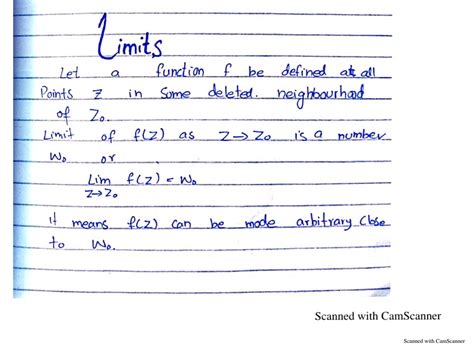 Limits
Let a function f be defined at all
Points z in some deleted. neighbourhood
of Z₀.
Limit of f(z) as z→z₀ is a number
W₀ or
Lim f(z) = W₀
z→z₀
it means f(z) can be made arbitrary close
to W₀.
Scanned with CamScanner
Scanned with CamScanner